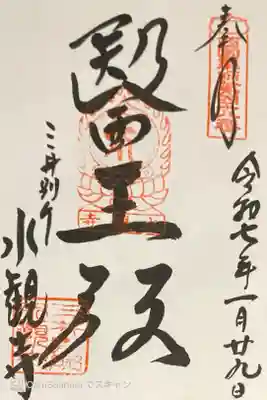 奉拝
令和七年一月廿九日
醫王殿
三井別所
水観寺
でスキャン